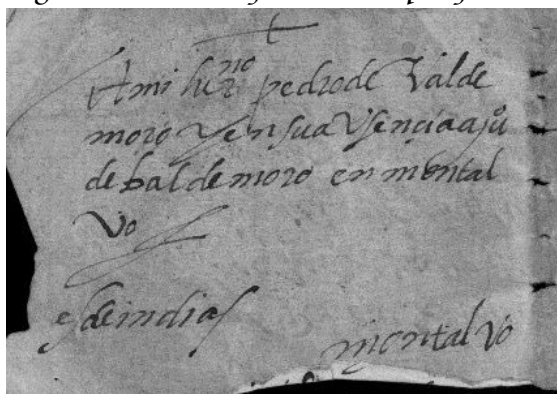 A mi her^no pedro de Valde
moro y en su avsençia a ju^o
de baldemoro en montal
vo
es de indias
montalvo